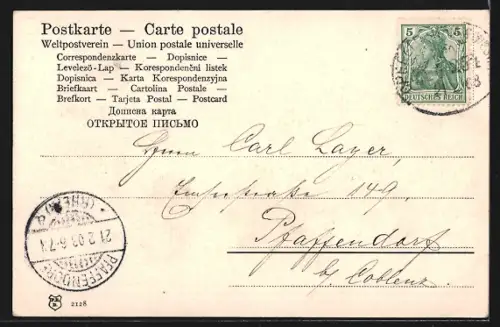 Postkarte — Carte postale
Weltpostverein — Union postale universelle
Correspondenzkarte — Dopisnice —
Levelező-Lap — Korespondenční lístek
Dopisnica — Karta Korespondenzyjna
Briefkaart — Cartolina Postale —
Brefkort — Tarjeta Postal — Postcard
Дописна карта
ОТКРЫТОЕ ПИСЬМО
5 5
DEUTSCHES REICH
Herrn Carl Layer,
Emserstraße 149,
Pfaffendorf
b/ Coblenz.
(RHEIN)
21.2.03.6-7
PFAFFENDORF
2128